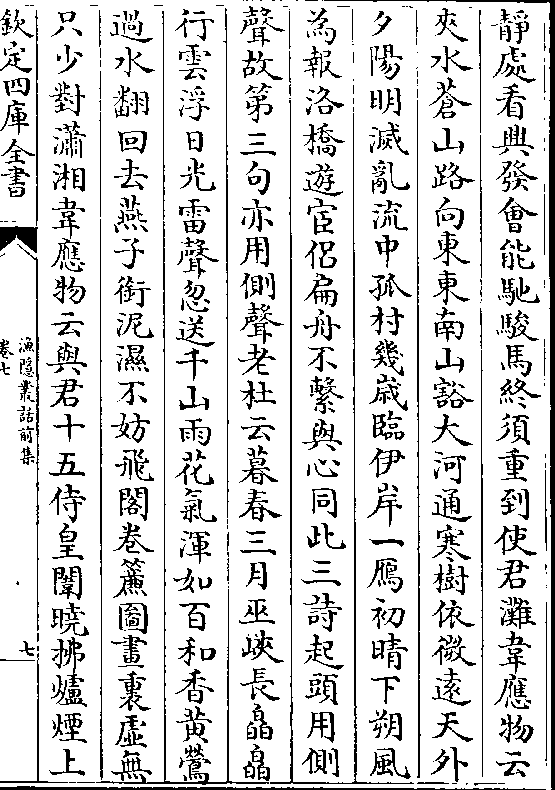 靜處看興發會能馳駿馬終須重到使君灘韋應物云
夾水蒼山路向東東南山豁大河通寒樹依微遠天外
夕陽明滅亂流中孤村幾歲臨伊岸一鴈初晴下朔風
為報洛橋遊宦侶扁舟不繫與心同此三詩起頭用側
聲故第三句亦用側聲老杜云暮春三月巫峽長皛皛
行雲浮日光雷聲忽送千山雨花氣渾如百和香黃鶯
過水翻回去燕子銜泥濕不妨飛閣卷簾圖畫裏虛無
只少對瀟湘韋應物云與君十五侍皇闈曉拂爐煙上
欽定四庫全書
漁隱叢話前集
卷七
七